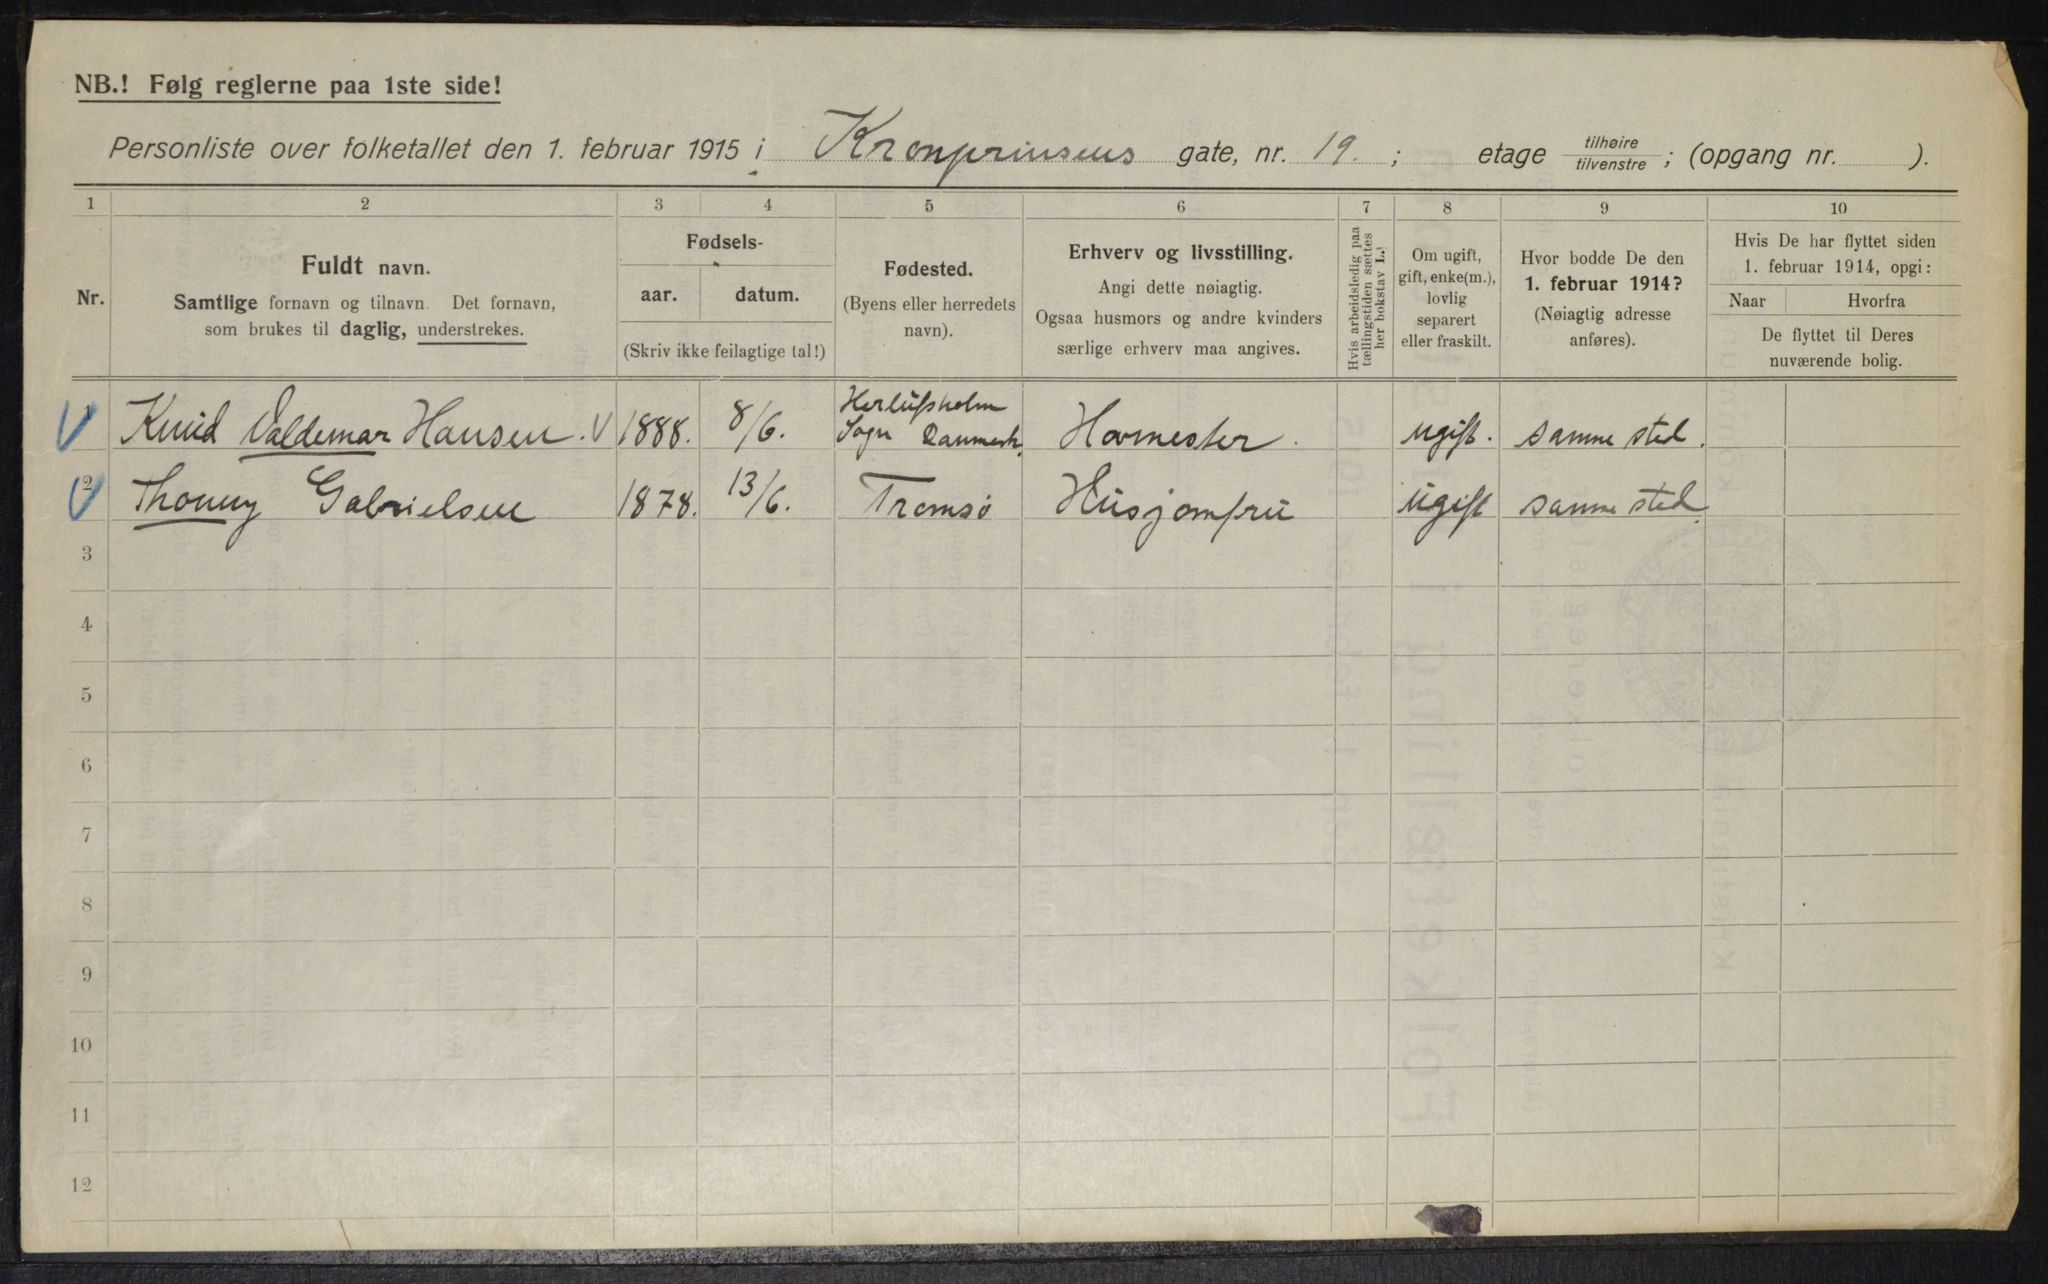 NB.! Følg reglerne paa 1ste side!
Personliste over folketallet den 1. februar 1915 i Kronprinsens gate, nr. 19. ; etage tilhøire / tilvenstre ; (opgang nr. ).
1 2 3 4 5 6 7 8 9 10
Nr.
Fuldt navn.
Samtlige fornavn og tilnavn. Det fornavn,
som brukes til daglig, understrekes.
Fødsels-
aar. datum.
(Skriv ikke feilagtige tal!)
Fødested.
(Byens eller herredets
navn).
Erhverv og livsstilling.
Angi dette nøiagtig.
Ogsaa husmors og andre kvinders
særlige erhverv maa angives.
Hvis arbeidsledig paa
tællingstiden sættes
her bokstav L.
Om ugift,
gift, enke(m.),
lovlig
separert
eller fraskilt.
Hvor bodde De den
1. februar 1914?
(Nøiagtig adresse
anføres).
Hvis De har flyttet siden
1. februar 1914, opgi:
Naar Hvorfra
De flyttet til Deres
nuværende bolig.
1 Knud Valdemar Hansen. V 1888. 8/6. Herlufsholm Sogn Danmark. Hovmester. ugift. samme sted.
2 Thonny Gabrielsen 1878. 13/6. Tromsö Husjomfru ugift samme sted.
3
4
5
6
7
8
9
10
11
12